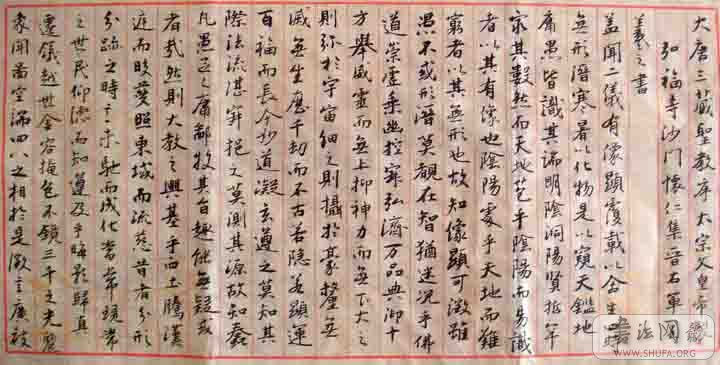 大唐三藏聖教序太宗文皇帝製
弘福寺沙門懷仁集晉右軍
羲之書
蓋聞二儀有像顯覆載以含生四時
無形潛寒暑以化物是以窺天鑑地
庸愚皆識其端明陰洞陽賢哲罕
窮其數然而天地苞乎陰陽而易識
者以其有像也陰陽處乎天地而難
窮者以其無形也故知像顯可徵雖
愚不惑形潛莫覩在智猶迷況乎佛
道崇虛乘幽控寂弘濟万品典御十
方舉威靈而無上抑神力而無下大之
則弥於宇宙細之則攝於豪釐無
滅無生歷千劫而不古若隱若顯運
百福而長今妙道凝玄遵之莫知其
際法流湛寂挹之莫測其源故知蠢
凡愚區々庸鄙投其旨趣能無疑或
者哉然則大教之興基乎西土騰漢
庭而皎夢照東域而流慈昔者分形
分跡之時言未馳而成化當常現常
之世民仰德而知遵及乎晦影歸真
遷儀越世金容掩色不鏡三千之光麗
象開圖空端四八之相於是微言廣被
书法网
WWW.SHUFA.ORG